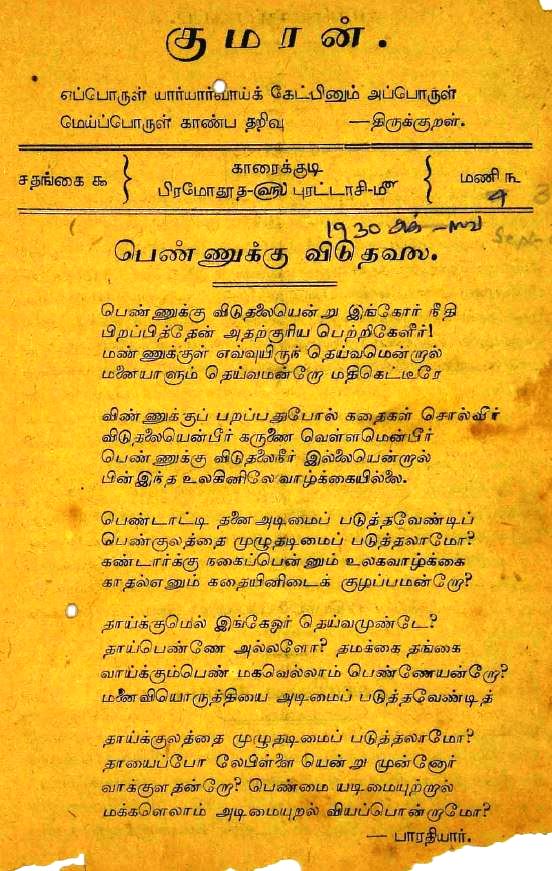 குமரன்.
எப்பொருள் யார்யார்வாய்க் கேட்பினும் அப்பொருள்
மெய்ப்பொருள் காண்ப தறிவு —திருக்குறள்.
சதங்கை ௯ } காரைக்குடி { மணி ௩
பிரமோதூத-௵ புரட்டாசி-௴ 4
1930
Sept-
பெண்ணுக்கு விடுதலை.
பெண்ணுக்கு விடுதலையென்று இங்கோர் நீதி
பிறப்பித்தேன் அதற்குரிய பெற்றிகேளீர்!
மண்ணுக்குள் எவ்வுயிருந் தெய்வமென்றால்
மனையாளும் தெய்வமன்றோ மதிகெட்டீரே
விண்ணுக்குப் பறப்பதுபோல் கதைகள் சொல்வீர்
விடுதலையென்பீர் கருணை வெள்ளமென்பீர்
பெண்ணுக்கு விடுதலைநீர் இல்லையென்றால்
பின்இந்த உலகினிலே வாழ்க்கையில்லை.
பெண்டாட்டி தனைஅடிமைப் படுத்தவேண்டிப்
பெண்குலத்தை முழுதடிமைப் படுத்தலாமோ?
கண்டார்க்கு நகைப்பென்னும் உலகவாழ்க்கை
காதல்எனும் கதையினிடைக் குழப்பமன்றோ?
தாய்க்குமெல் இங்கேஓர் தெய்வமுண்டே?
தாய்பெண்ணே அல்லளோ? தமக்கை தங்கை
வாய்க்கும்பெண் மகவெல்லாம் பெண்ணேயன்றோ?
மனைவியொருத்தியை அடிமைப் படுத்தவேண்டித்
தாய்க்குலத்தை முழுதடிமைப் படுத்தலாமோ?
தாயைப்போ லேபிள்ளை யென்று முன்னோர்
வாக்குளதன்றோ? பெண்மை யடிமையுற்றால்
மக்களெலாம் அடிமையுறல் வியப்பொன்றாமோ?
— பாரதியார்.